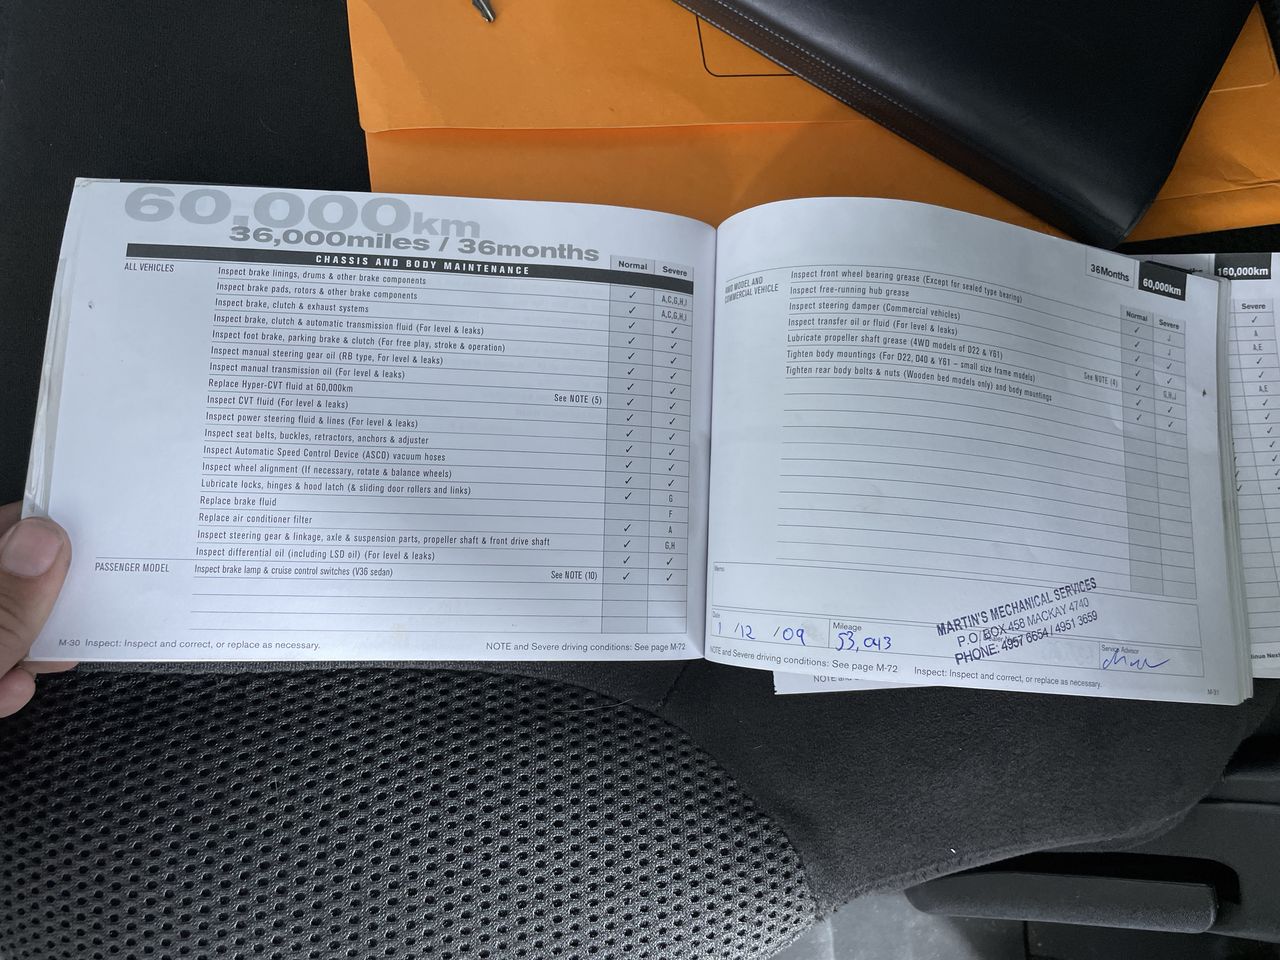 60,000km
36,000miles / 36months
CHASSIS AND BODY MAINTENANCE
Normal Severe
ALL VEHICLES
Inspect brake linings, drums & other brake components ✓ A,C,G,H,I
Inspect brake pads, rotors & other brake components ✓ A,C,G,H,I
Inspect brake, clutch & exhaust systems ✓ ✓
Inspect brake, clutch & automatic transmission fluid (For level & leaks) ✓ ✓
Inspect foot brake, parking brake & clutch (For free play, stroke & operation) ✓ ✓
Inspect manual steering gear oil (RB type, For level & leaks) ✓ ✓
Inspect manual transmission oil (For level & leaks) ✓ ✓
Replace Hyper-CVT fluid at 60,000km See NOTE (5) ✓ ✓
Inspect CVT fluid (For level & leaks) ✓ ✓
Inspect power steering fluid & lines (For level & leaks) ✓ ✓
Inspect seat belts, buckles, retractors, anchors & adjuster ✓ ✓
Inspect Automatic Speed Control Device (ASCD) vacuum hoses ✓ ✓
Inspect wheel alignment (If necessary, rotate & balance wheels) ✓ ✓
Lubricate locks, hinges & hood latch (& sliding door rollers and links) ✓ G
Replace brake fluid F
Replace air conditioner filter ✓ A
Inspect steering gear & linkage, axle & suspension parts, propeller shaft & front drive shaft ✓ G,H
Inspect differential oil (including LSD oil) (For level & leaks) ✓ ✓
PASSENGER MODEL
Inspect brake lamp & cruise control switches (V36 sedan) See NOTE (10) ✓ ✓
M-30 Inspect: Inspect and correct, or replace as necessary. NOTE and Severe driving conditions: See page M-72
36Months 60,000km
Normal Severe
4WD MODEL AND
COMMERCIAL VEHICLE
Inspect front wheel bearing grease (Except for sealed type bearing) ✓ J
Inspect free-running hub grease ✓ J
Inspect steering damper (Commercial vehicles) ✓ ✓
Inspect transfer oil or fluid (For level & leaks) ✓ ✓
Lubricate propeller shaft grease (4WD models of D22 & Y61) See NOTE (4) ✓ G,H,J
Tighten body mountings (For D22, D40 & Y61 – small size frame models) ✓ ✓
Tighten rear body bolts & nuts (Wooden bed models only) and body mountings ✓ ✓
Memo
Date
1 /12 /09
Mileage
53,043
MARTIN'S MECHANICAL SERVICES
P.O. BOX 458 MACKAY 4740
PHONE: 4957 6654 / 4951 3659
Service Advisor
NOTE and Severe driving conditions: See page M-72 Inspect: Inspect and correct, or replace as necessary.
M-31
160,000km
Severe
✓
A
A,E
✓
✓
A,E